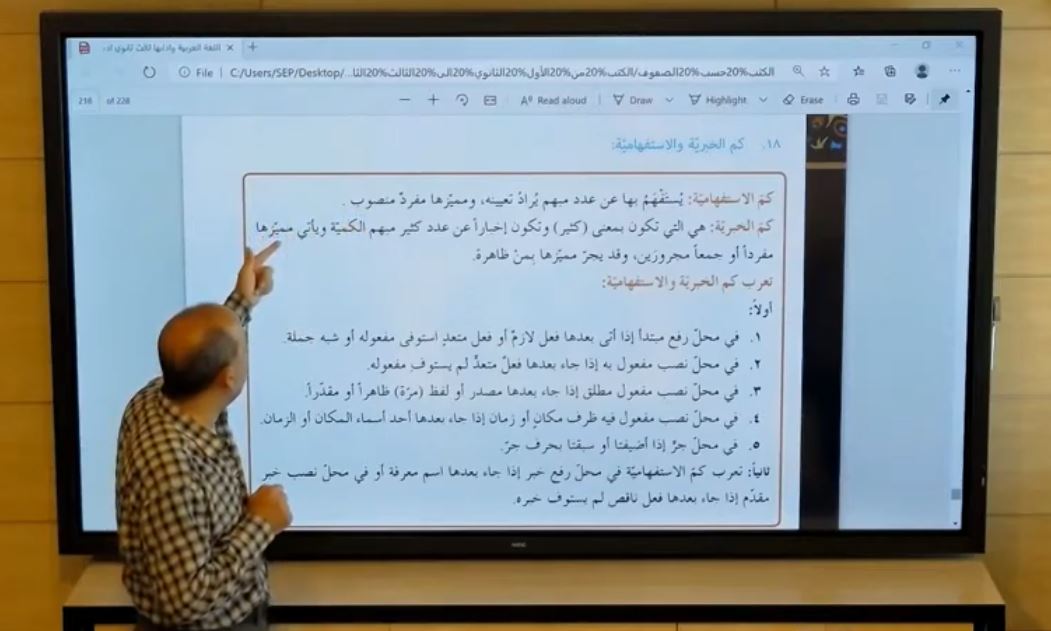 اللغة العربية وادابها ثالث ثانوي اد
File | C:/Users/SEP/Desktop/...الكتب%20حسب%20الصفوف/الكتب%20من%20الأول%20الثانوي%20الى%20الثالث%20الثا
216 of 228 Read aloud Draw Highlight Erase
١٨. كم الخبريّة والاستفهاميّة:
كمْ الاستفهاميّة: يُستَفْهَمُ بها عن عدد مبهم يُرادُ تعيينه، ومميّزها مفردٌ منصوب.
كمْ الخبريّة: هي التي تكون بمعنى (كثير) وتكون إخباراً عن عدد كثير مبهم الكميّة ويأتي مميّزها
مفرداً أو جمعاً مجرورَين، وقد يجرّ مميّزها بِمنْ ظاهرة.
تعرب كم الخبريّة والاستفهاميّة:
أولاً:
١. في محلّ رفع مبتدأ إذا أتى بعدها فعل لازمٌ أو فعل متعدٍ استوفى مفعوله أو شبه جملة.
٢. في محلّ نصب مفعول به إذا جاء بعدها فعلٌ متعدٍّ لم يستوفِ مفعوله.
٣. في محلّ نصب مفعول مطلق إذا جاء بعدها مصدر أو لفظ (مرّة) ظاهراً أو مقدّراً.
٤. في محلّ نصب مفعول فيه ظرف مكانٍ أو زمان إذا جاء بعدها أحد أسماء المكان أو الزمان.
٥. في محلّ جرٍّ إذا أضيفتا أو سبقتا بحرف جرّ.
ثانياً: تعرب كمْ الاستفهاميّة في محلّ رفع خبر إذا جاء بعدها اسم معرفة أو في محلّ نصب خبر
مقدّم إذا جاء بعدها فعل ناقص لم يستوف خبره.